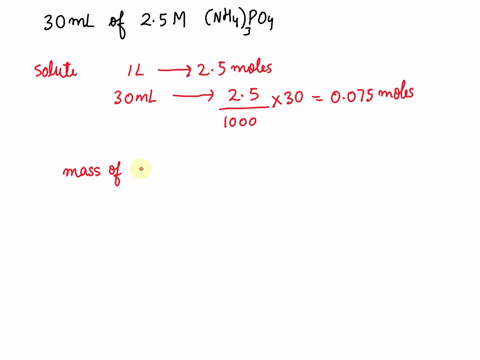 30mL of 2.5M (NH4)3PO4
Solute 1L → 2.5 moles
30mL → 2.5/1000 × 30 = 0.075 moles
mass of